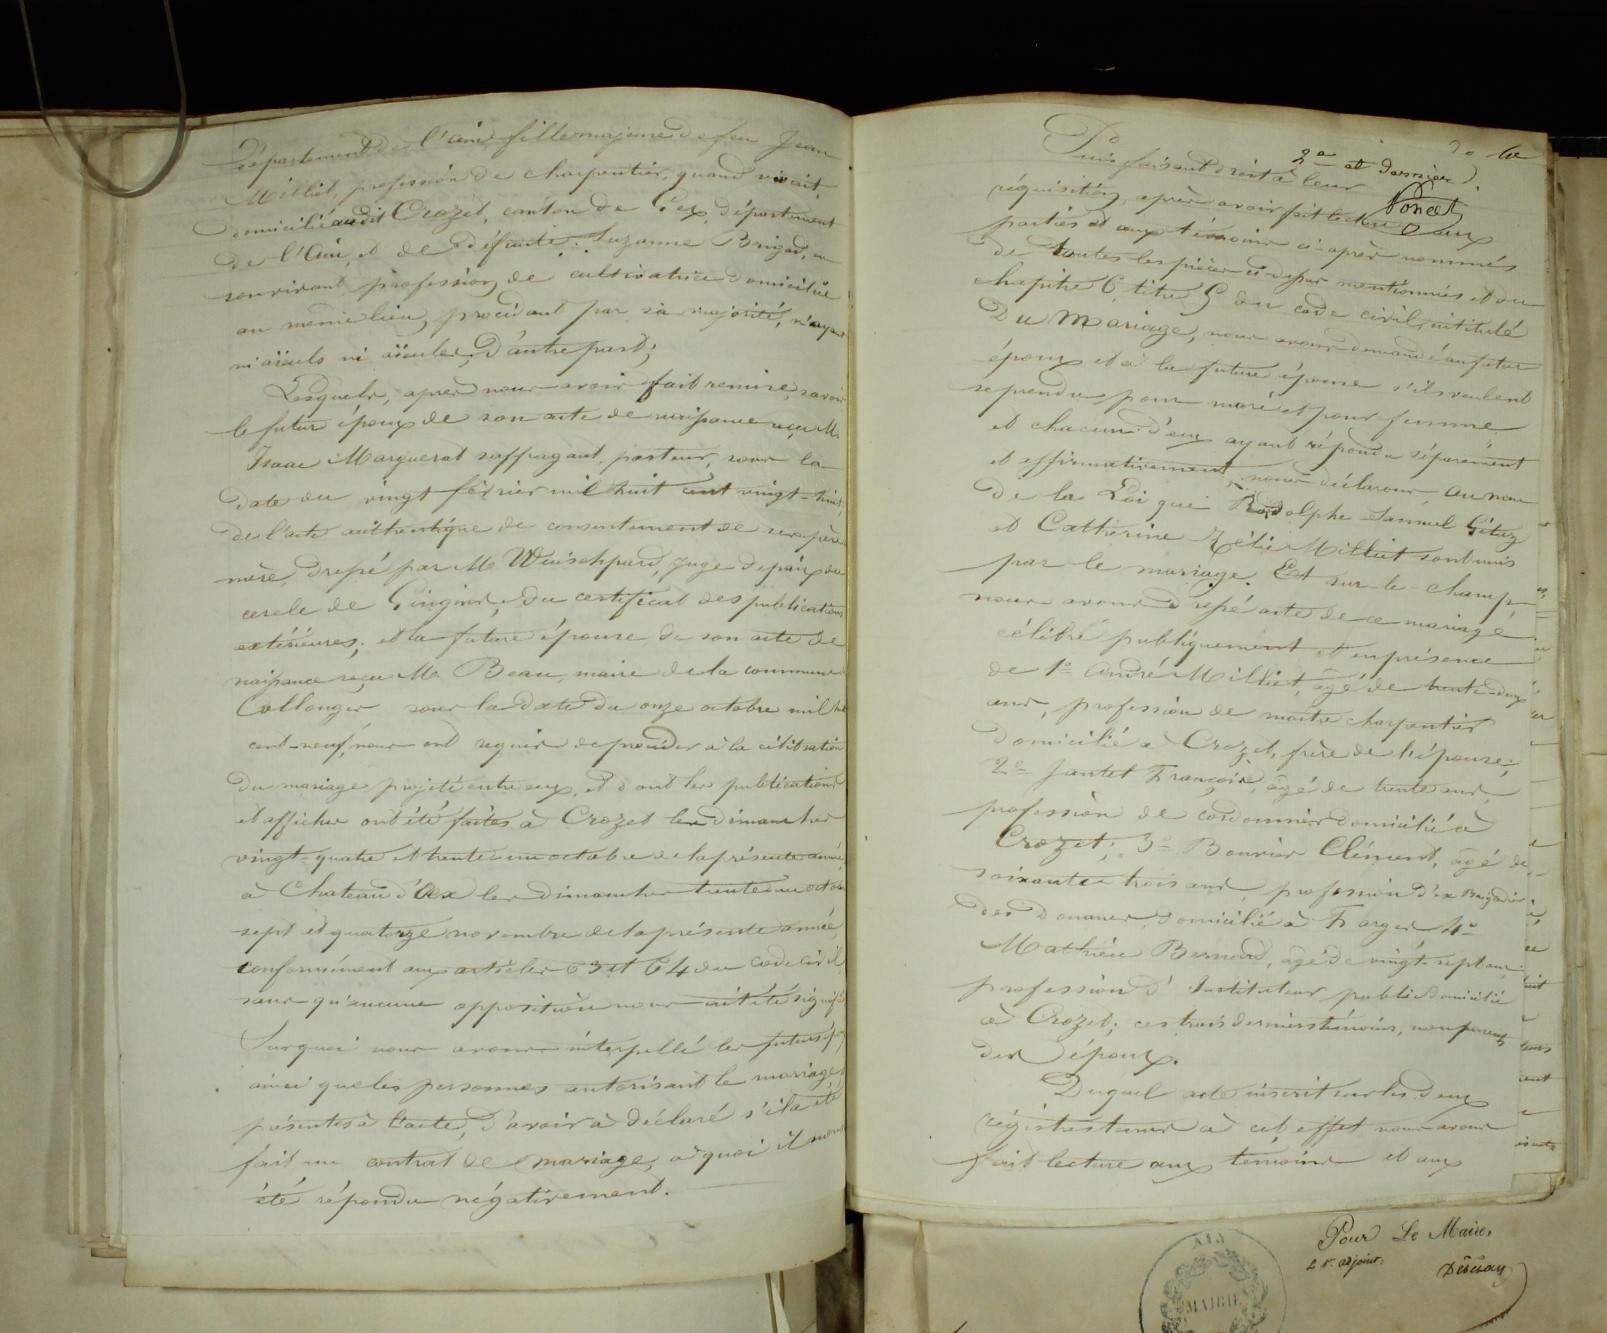 Département de l'Ain fille majeure de feu Jean
Milliet, profession de charpentier, quand vivait,
domicilié audit Crozet, canton de Gex, département
de l'Ain, et de défunte: Suzanne Brigad, en
son vivant profession de cultivatrice domiciliée
au même lieu, procédant par sa majorité, n'ayant
ni aïeuls ni aïeules, D'autre part;
Lesquels, après nous avoir fait remise, savoir
le futur époux de son acte de naissance reçu M.
Isaac Marguerat suffragant pasteur, sous la
date du vingt février mil huit cent vingt-huit,
de l'acte authentique de consentement de ses père
mère, dressé par M Juge de paix du
cercle de Gingins, du certificat des publications
extérieures; et la future épouse de son acte de
naissance reçu M. Beau, maire de la commune
Collonges sous la date du onze octobre mil huit
cent-neuf, nous ont requis de procéder à la célébration
du mariage projeté entre eux, et dont les publications
et affiches ont été faites à Crozet les dimanches
vingt-quatre et trente un octobre de la présente année,
à Chateau d'Oex les dimanches trente un octobre
sept et quatorze novembre de la présente année
conformément aux articles 63 et 64 du code civil
sans qu'aucune opposition nous ait été signifié
Surquoi nous avons interpellé les futurs époux
ainsi que les personnes autorisant le mariage,
présentes à l'acte, d'avoir à déclaré s'il a été
fait un contrat de mariage, à quoi il nous
été répondu négativement.
2e et dernier
Poncet
Puis faisant droit à leur
réquisition, après avoir fait lecture aux
parties et aux témoins ci-après nommés
de toutes les pièces ci-dessus mentionnées et du
chapitre 6, titre 5 du code civil, intitulé
Du Mariage, nous avons demandé au futur
époux et à la future épouse s'ils veulent
se prendre pour mari et pour femme
et chacun d'eux ayant répondu séparément
et affirmativement, nous déclarons au nom
de la Loi que Rodolphe Samuel Gétaz
et Catherine Zélie Milliet sont unis
par le mariage. Et sur-le-champ,
nous avons dressé acte de ce mariage
célébré publiquement et en présence
de 1° André Milliet, âgé de trente-deux
ans, profession de maître charpentier
domicilié à Crozet, frère de l'épouse;
2° Jantet François, âgé de trente ans,
profession de cordonnier domicilié à
Crozet; 3° Bouvier Clément, âgé de
soixante trois ans, profession d'ex Brigadier
des Douanes domicilié à Farges 4°
Mathieu Bernard, âgé de vingt-sept ans
profession d'Instituteur public domicilié
à Crozet; ces trois derniers témoins, non parents
des époux.
Duquel acte inscrit sur les deux
régistres tenus à cet effet nous avons
fait lecture aux témoins et aux
Pour Le Maire,
2e adjoint.
MAIRIE
AIN